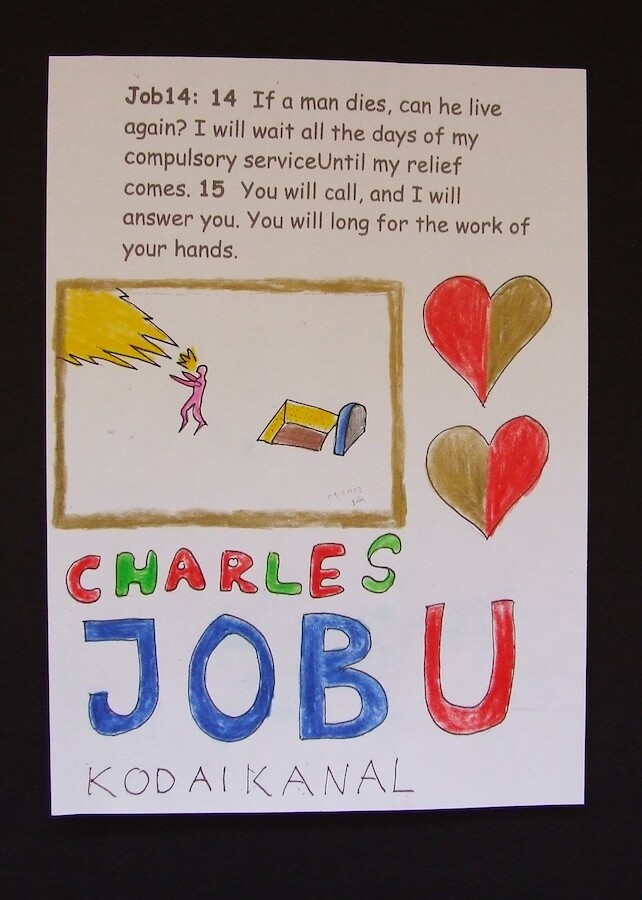 Job14: 14 If a man dies, can he live
again? I will wait all the days of my
compulsory serviceUntil my relief
comes. 15 You will call, and I will
answer you. You will long for the work of
your hands.
CHARLES
JOB U
KODAIKANAL